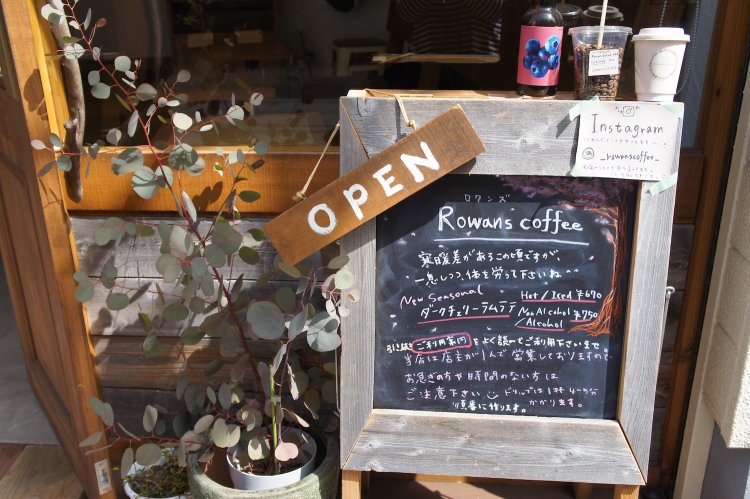 OPEN
Instagram
@_rowanscoffee_
ロワンズ
Rowans coffee
寒暖差があるこの頃ですが、
一息しつつ、体を労って下さいね^^
New Seasonal
Hot / Iced ¥670
ダークチェリーラムラテ
Non Alcohol ¥750
/Alcohol
引き続きご利用案内をよく読んでご利用下さいませ
当店は店主が1人で営業しておりますので
お急ぎの方や時間のない方は
ご注意下さい
ドリップは1杯4~5分
かかります。
順番に作ります。